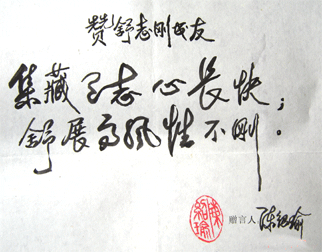 赞舒志刚友
集藏志心长快；
舒展高风性不刚。
赠言人 陈绍瑜